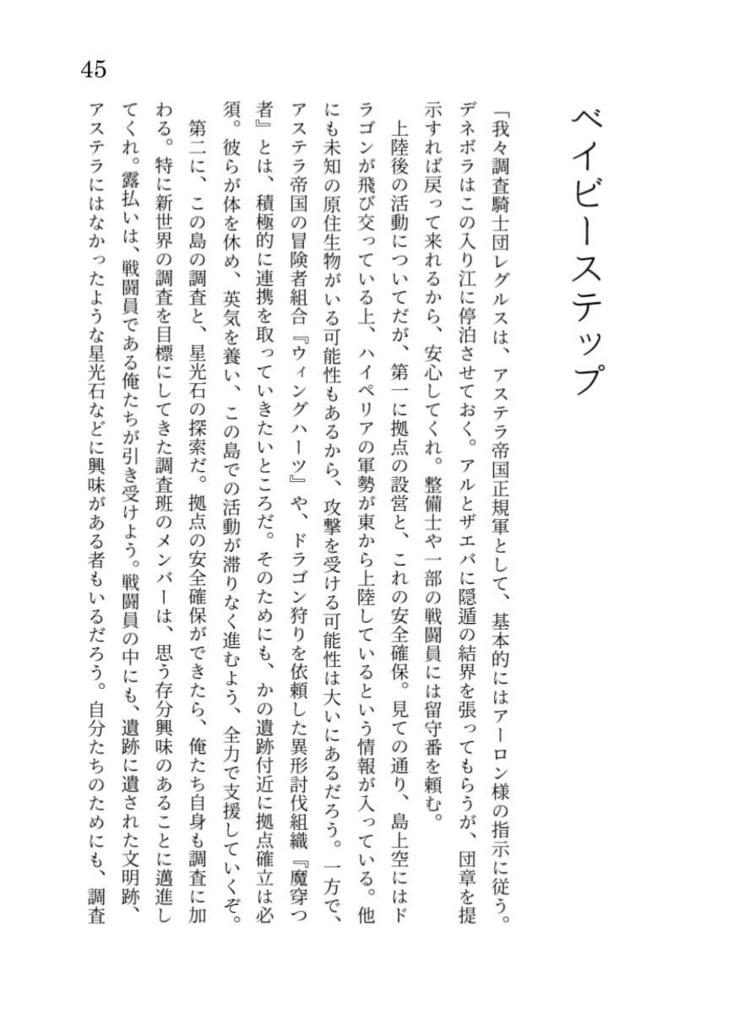 45
ベイビーステップ
「我々調査騎士団レグルスは、アステラ帝国正規軍として、基本的にはアーロン様の指示に従う。
デネボラはこの入り江に停泊させておく。アルとザエバに隠遁の結界を張ってもらうが、団章を提
示すれば戻って来れるから、安心してくれ。整備士や一部の戦闘員には留守番を頼む。
上陸後の活動についてだが、第一に拠点の設営と、これの安全確保。見ての通り、島上空にはド
ラゴンが飛び交っている上、ハイペリアの軍勢が東から上陸しているという情報が入っている。他
にも未知の原住生物がいる可能性もあるから、攻撃を受ける可能性は大いにあるだろう。一方で、
アステラ帝国の冒険者組合『ウィングハーツ』や、ドラゴン狩りを依頼した異形討伐組織『魔穿つ
者』とは、積極的に連携を取っていきたいところだ。そのためにも、かの遺跡付近に拠点確立は必
須。彼らが体を休め、英気を養い、この島での活動が滞りなく進むよう、全力で支援していくぞ。
第二に、この島の調査と、星光石の探索だ。拠点の安全確保ができたら、俺たち自身も調査に加
わる。特に新世界の調査を目標にしてきた調査班のメンバーは、思う存分興味のあることに邁進し
てくれ。露払いは、戦闘員である俺たちが引き受けよう。戦闘員の中にも、遺跡に遺された文明跡、
アステラにはなかったような星光石などに興味がある者もいるだろう。自分たちのためにも、調査